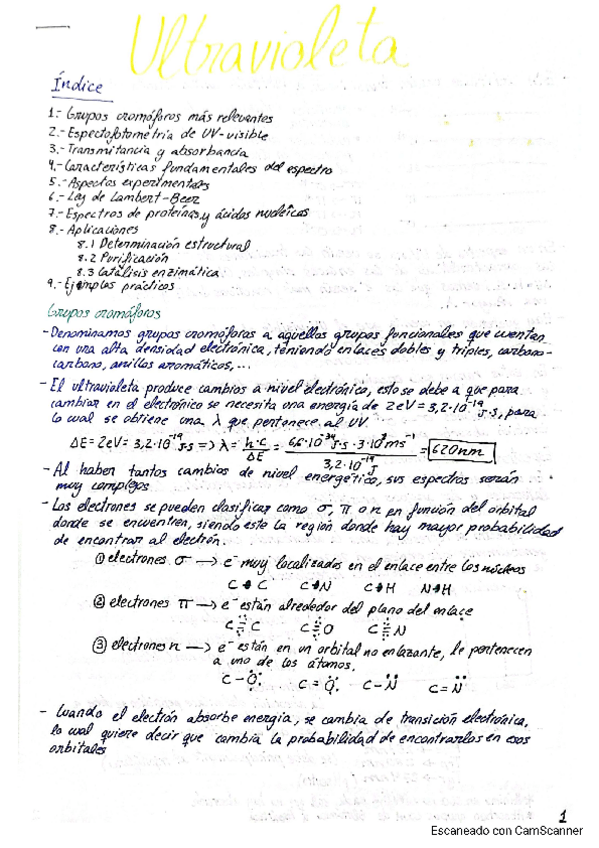 Ultravioleta
Índice
1.- Grupos cromóforos más relevantes
2.- Espectofotometría de UV-visible
3.- Transmitancia y absorbancia
4.- Características fundamentales del espectro
5.- Aspectos experimentales
6.- Ley de Lambert-Beer
7.- Espectros de proteínas y ácidos nucleicos
8.- Aplicaciones
8.1 Determinación estructural
8.2 Purificación
8.3 Catálisis enzimática
9.- Ejemplos prácticos
Grupos cromóforos
- Denominamos grupos cromóforos a aquellos grupos funcionales que cuentan
con una alta densidad electrónica, teniendo enlaces dobles y triples, carbono-
carbono, anillos aromáticos,...
- El ultravioleta produce cambios a nivel electrónico, esto se debe a que para
cambiar en el electrónico se necesita una energía de 2eV = 3,2·10⁻¹⁹ J·s, para
lo cual se obtiene una λ que pertenece al UV
ΔE = 2eV = 3,2·10⁻¹⁹ J·s => λ = h·c / ΔE = 6,6·10⁻³⁴ J·s · 3·10⁸ ms⁻¹ / 3,2·10⁻¹⁹ J = 620nm
- Al haber tantos cambios de nivel energético, sus espectros serán
muy complejos
- Los electrones se pueden clasificar como σ, π o n en función del orbital
donde se encuentren, siendo este la región donde hay mayor probabilidad
de encontrar al electrón.
① electrones σ → e⁻ muy localizados en el enlace entre los núcleos
C : C C : N C : H N : H
② electrones π → e⁻ están alrededor del plano del enlace
C C C O C N
③ electrones n → e⁻ están en un orbital no enlazante, le pertenecen
a uno de los átomos.
C - O C = O C - N C = N
- Cuando el electrón absorbe energía, se cambia de transición electrónica,
lo cual quiere decir que cambia la probabilidad de encontrarlos en esos
orbitales
1
Escaneado con CamScanner